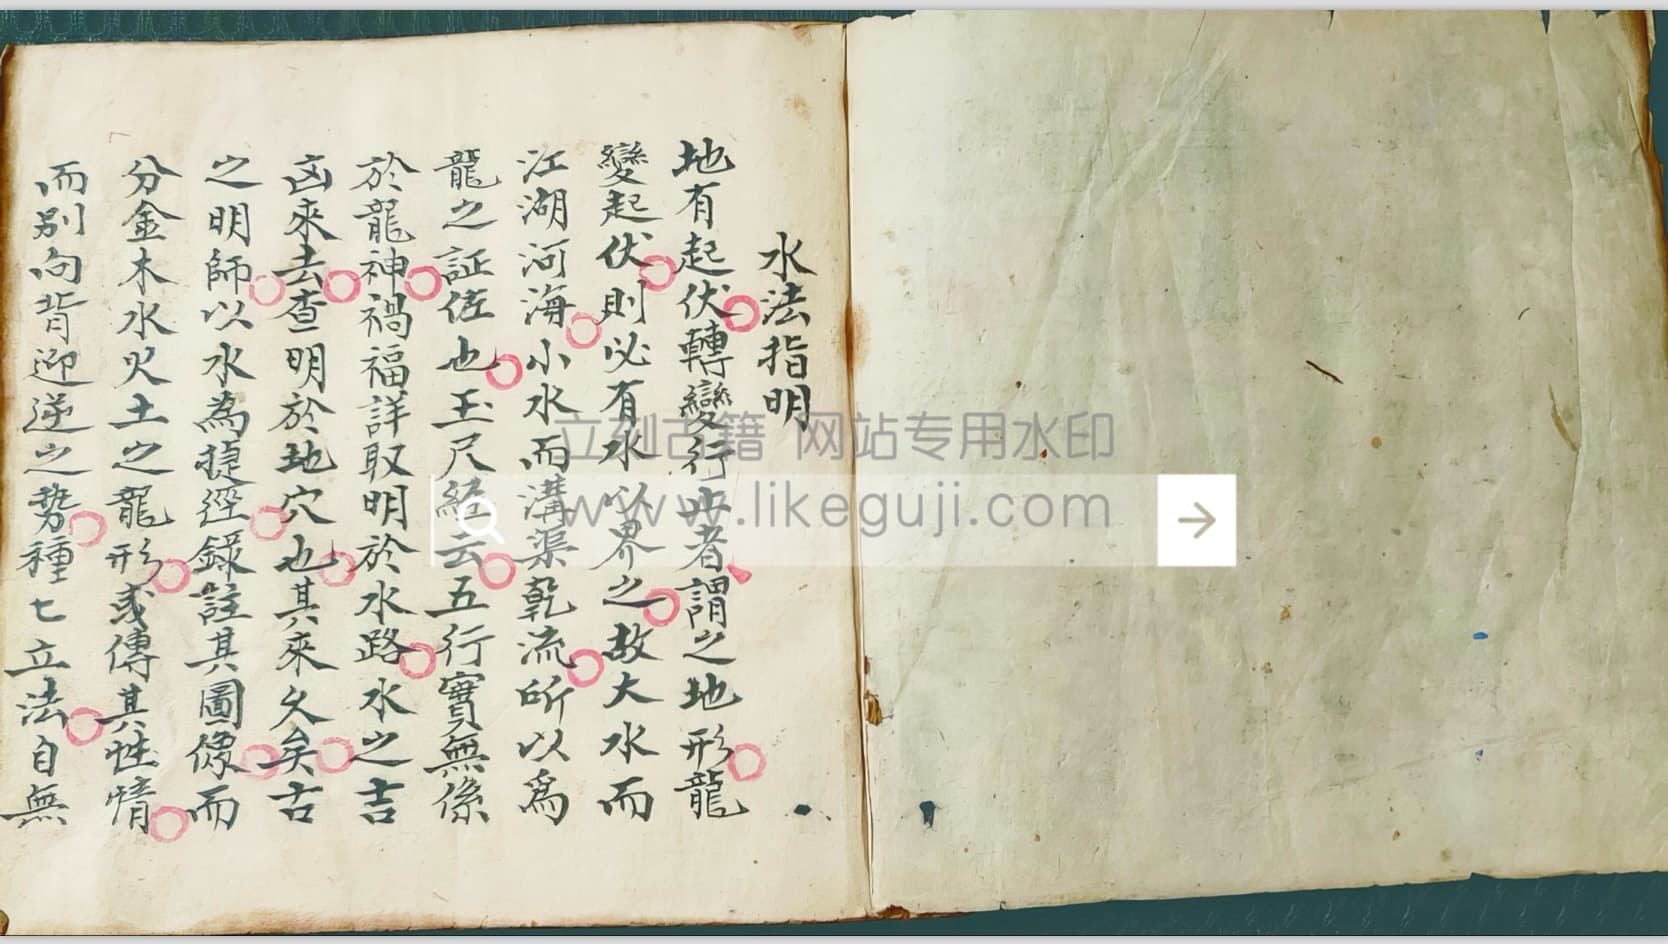 水法指明
地有起伏轉變行止者謂之地形龍
變起伏則必有水以界之故大水而
江湖河海小水而溝渠乾流所以爲
龍之証佐也玉尺經云五行實無係
於龍神禍福詳取明於水路水之吉
凶來去查明於地穴也其來久矣古
之明師以水為捷徑錄註其圖像而
分金木水火土之龍形或傳其性情
而别向背迎逆之勢種七立法自無
立刻古籍 网站专用水印
www.likeguji.com